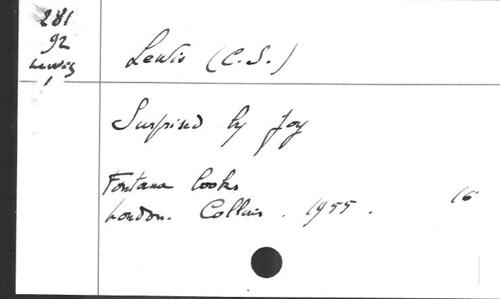 281
92
Lewis
1
Lewis (C.S.)
Surprised by Joy
Fontana books
London. Collins. 1955. 16